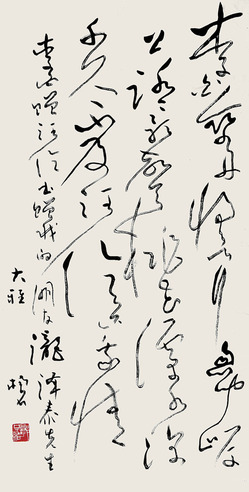 李白乘舟将欲行忽闻岸
上踏歌声桃花潭水深
千尺不及汪伦送我情
李白赠汪伦书赠我的朋友瀧泽泰先生
大雅